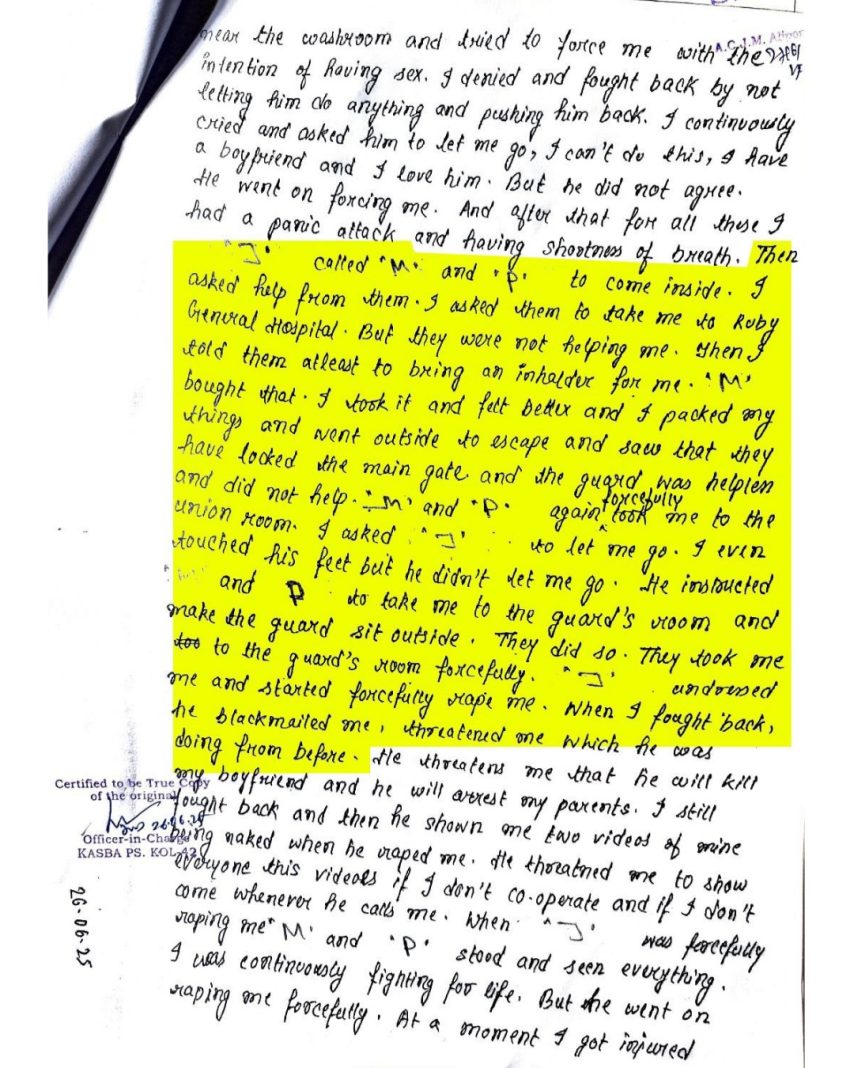 A.C.J.M. Alipor
near the washroom and tried to force me with the
intention of having sex. I denied and fought back by not
letting him do anything and pushing him back. I continuously
cried and asked him to let me go, I can't do this, I have
a boyfriend and I love him. But he did not agree.
He went on forcing me. And after that for all these I
had a panic attack and having shortness of breath. Then
"J" called "M" and "P" to come inside. I
asked help from them. I asked them to take me to Ruby
General Hospital. But they were not helping me. Then I
told them atleast to bring an inhalder for me. "M"
bought that. I took it and felt better and I packed my
things and went outside to escape and saw that they
have locked the main gate and the guard was helpless
and did not help. "M" and "P" again forcefully took me to the
union room. I asked "J" to let me go. I even
touched his feet but he didn't let me go. He instructed
and P to take me to the guard's room and
make the guard sit outside. They did so. They took me
too to the guard's room forcefully. "J" undressed
me and started forcefully rape me. When I fought back,
he blackmailed me, threatened me which he was
doing from before. He threatens me that he will kill
my boyfriend and he will arrest my parents. I still
fought back and then he shown me two videos of mine
being naked when he raped me. He threatned me to show
everyone this videoes if I don't co-operate and if I don't
come whenever he calls me. When "J" was forcefully
raping me "M" and "P" stood and seen everything.
I was continuously fighting for life. But he went on
raping me forcefully. At a moment I got injured
Certified to be True Copy
of the original
26.06.25
Officer-in-Charge
KASBA PS. KOL-42
26-06-25